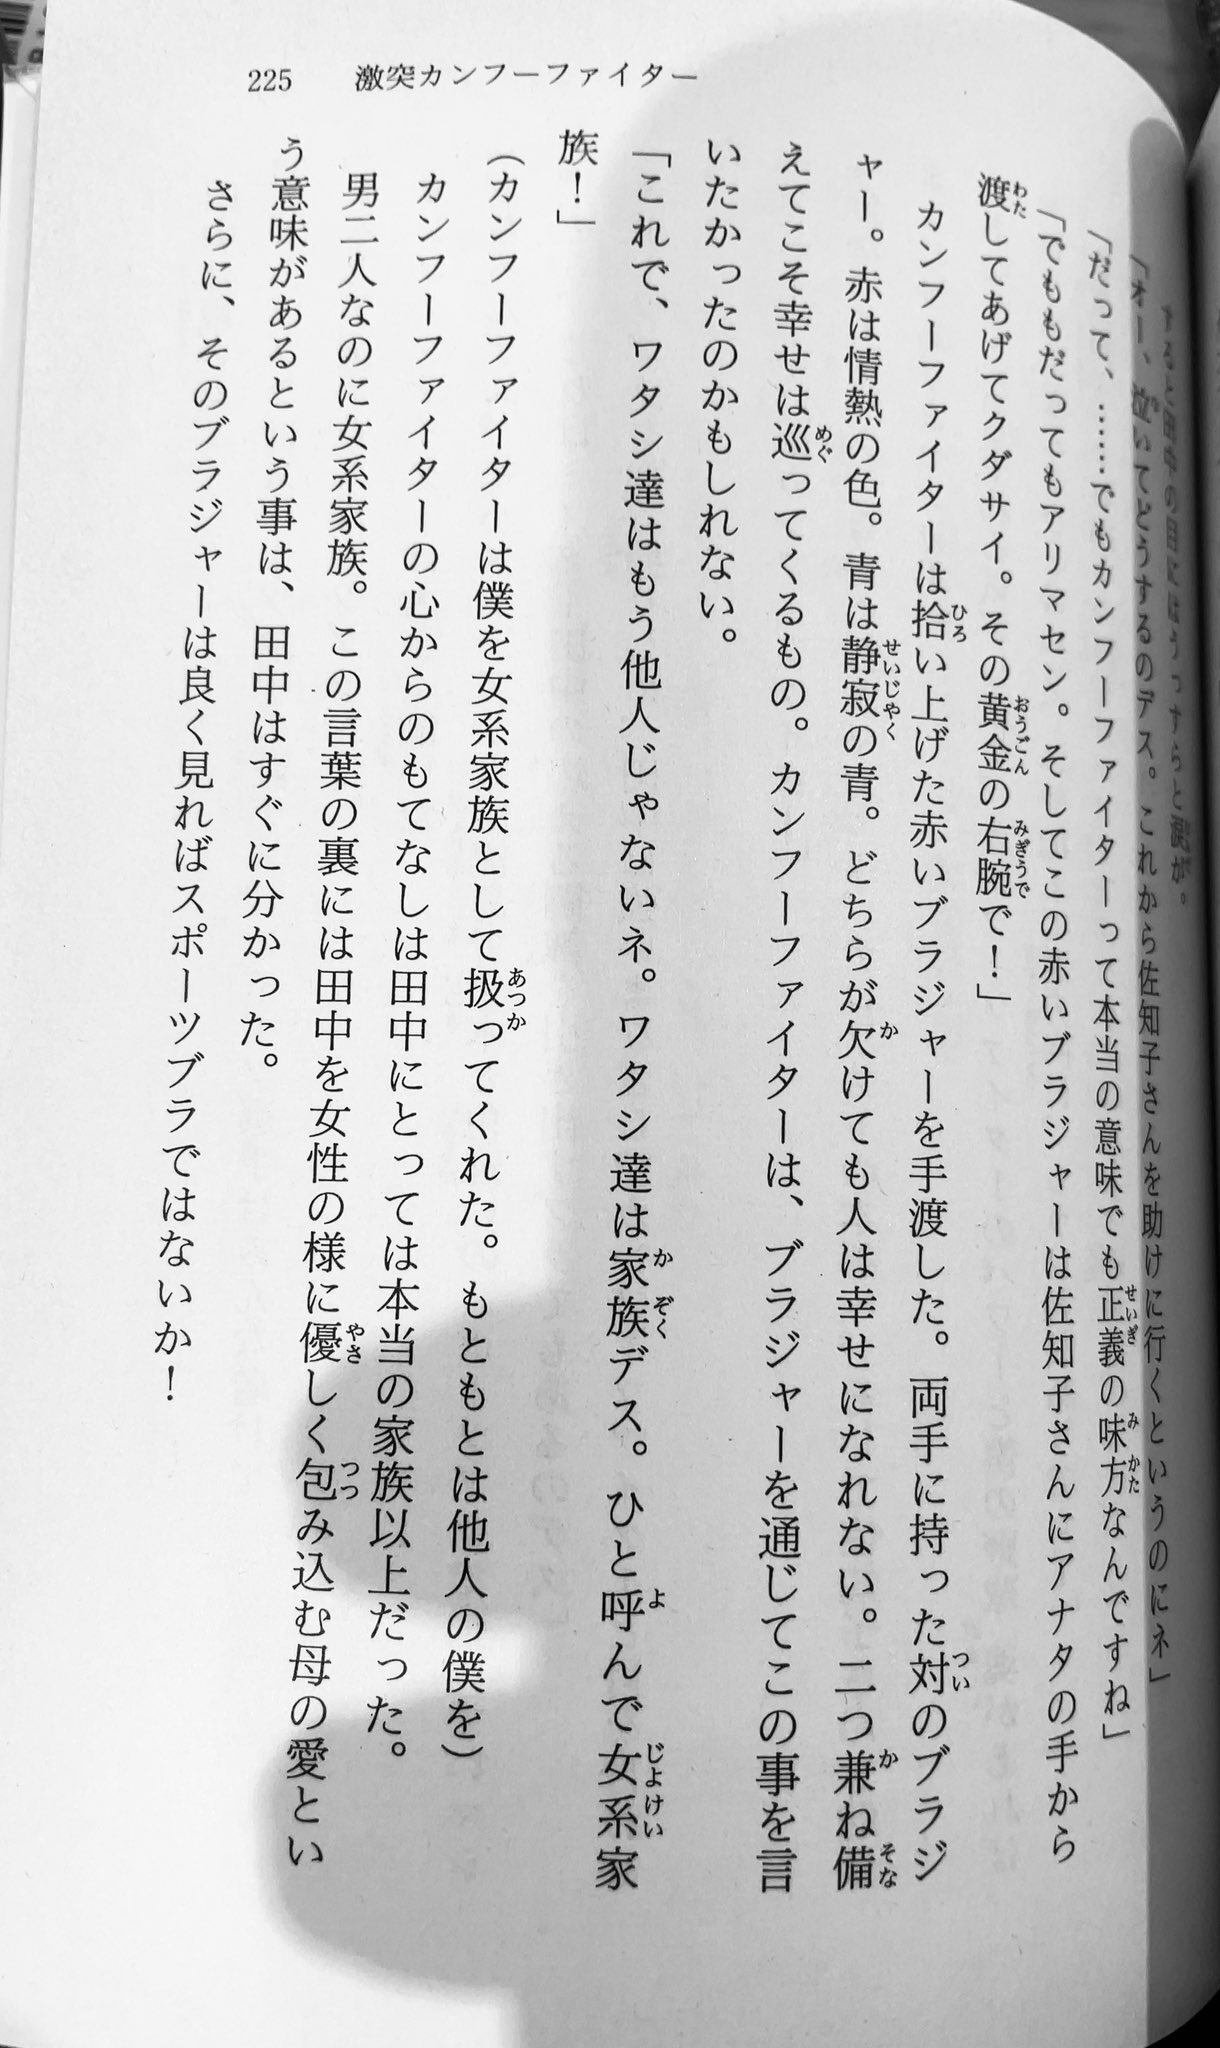 225 激突カンフーファイター
すると田中の目にはうっすらと涙が。
「オー、泣いてどうするのデス。これから佐知子さんを助けに行くというのにネ」
「だって、……でもカンフーファイターって本当の意味でも正義の味方なんですね」
「でももだってもアリマセン。そしてこの赤いブラジャーは佐知子さんにアナタの手から
渡してあげてクダサイ。その黄金の右腕で！」
カンフーファイターは拾い上げた赤いブラジャーを手渡した。両手に持った対のブラジ
ャー。赤は情熱の色。青は静寂の青。どちらが欠けても人は幸せになれない。二つ兼ね備
えてこそ幸せは巡ってくるもの。カンフーファイターは、ブラジャーを通じてこの事を言
いたかったのかもしれない。
「これで、ワタシ達はもう他人じゃないネ。ワタシ達は家族デス。ひと呼んで女系家
族！」
（カンフーファイターは僕を女系家族として扱ってくれた。もともとは他人の僕を）
カンフーファイターの心からのもてなしは田中にとっては本当の家族以上だった。
男二人なのに女系家族。この言葉の裏には田中を女性の様に優しく包み込む母の愛とい
う意味があるという事は、田中はすぐに分かった。
さらに、そのブラジャーは良く見ればスポーツブラではないか！